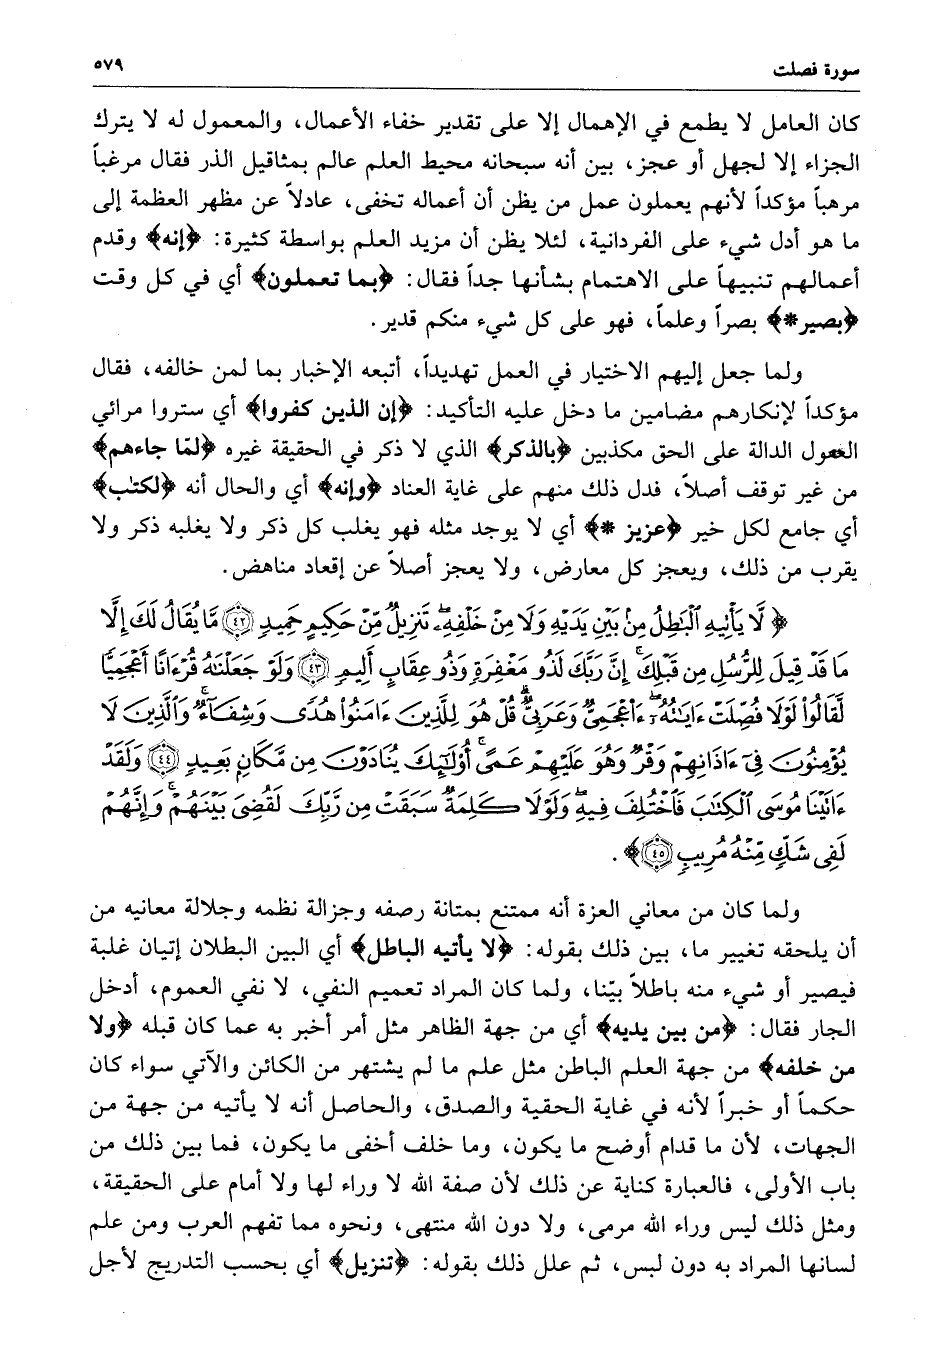 سورة فصلت
٥٧٩
كان العامل لا يطمع في الإهمال إلا على تقدير خفاء الأعمال، والمعمول له لا يترك
الجزاء إلا لجهل أو عجز، بين أنه سبحانه محيط العلم عالم بمثاقيل الذر فقال مرغباً
مرهباً مؤكداً لأنهم يعملون عمل من يظن أن أعماله تخفى، عادلاً عن مظهر العظمة إلى
ما هو أدل شيء على الفردانية، لئلا يظن أن مزيد العلم بواسطة كثيرة: ﴿إنه﴾ وقدم
أعمالهم تنبيهاً على الاهتمام بشأنها جداً فقال: ﴿بما تعملون﴾ أي في كل وقت
﴿بصير*﴾ بصراً وعلماً، فهو على كل شيء منكم قدير.
ولما جعل إليهم الاختيار في العمل تهديداً، أتبعه الإخبار بما لمن خالفه، فقال
مؤكداً لإنكارهم مضامين ما دخل عليه التأكيد: ﴿إن الذين كفروا﴾ أي ستروا مرائي
العقول الدالة على الحق مكذبين ﴿بالذكر﴾ الذي لا ذكر في الحقيقة غيره ﴿لمّا جاءهم﴾
من غير توقف أصلاً، فدل ذلك منهم على غاية العناد ﴿وإنه﴾ أي والحال أنه ﴿لكتٰب﴾
أي جامع لكل خير ﴿عزيز *﴾ أي لا يوجد مثله فهو يغلب كل ذكر ولا يغلبه ذكر ولا
يقرب من ذلك، ويعجز كل معارض، ولا يعجز أصلاً عن إقعاد مناهض.
﴿لَّا يَأْتِيهِ ٱلْبَٰطِلُ مِنۢ بَيْنِ يَدَيْهِ وَلَا مِنْ خَلْفِهِۦ ۖ تَنزِيلٌ مِّنْ حَكِيمٍ حَمِيدٍ ﴿٤٢﴾ مَّا يُقَالُ لَكَ إِلَّا
مَا قَدْ قِيلَ لِلرُّسُلِ مِن قَبْلِكَ ۚ إِنَّ رَبَّكَ لَذُو مَغْفِرَةٍ وَذُو عِقَابٍ أَلِيمٍ ﴿٤٣﴾ وَلَوْ جَعَلْنَٰهُ قُرْءَانًا أَعْجَمِيًّا
لَّقَالُوا۟ لَوْلَا فُصِّلَتْ ءَايَٰتُهُۥٓ ۖ ءَا۬عْجَمِىٌّ وَعَرَبِىٌّ ۗ قُلْ هُوَ لِلَّذِينَ ءَامَنُوا۟ هُدًى وَشِفَآءٌ ۖ وَٱلَّذِينَ لَا
يُؤْمِنُونَ فِىٓ ءَاذَانِهِمْ وَقْرٌ وَهُوَ عَلَيْهِمْ عَمًى ۚ أُو۟لَٰٓئِكَ يُنَادَوْنَ مِن مَّكَانٍۭ بَعِيدٍ ﴿٤٤﴾ وَلَقَدْ
ءَاتَيْنَا مُوسَى ٱلْكِتَٰبَ فَٱخْتُلِفَ فِيهِ ۗ وَلَوْلَا كَلِمَةٌ سَبَقَتْ مِن رَّبِّكَ لَقُضِىَ بَيْنَهُمْ ۚ وَإِنَّهُمْ
لَفِى شَكٍّ مِّنْهُ مُرِيبٍ ﴿٤٥﴾﴾.
ولما كان من معاني العزة أنه ممتنع بمتانة رصفه وجزالة نظمه وجلالة معانيه من
أن يلحقه تغيير ما، بين ذلك بقوله: ﴿لا يأتيه الباطل﴾ أي البين البطلان إتيان غلبة
فيصير أو شيء منه باطلاً بيّنا، ولما كان المراد تعميم النفي، لا نفي العموم، أدخل
الجار فقال: ﴿من بين يديه﴾ أي من جهة الظاهر مثل أمر أخبر به عما كان قبله ﴿ولا
من خلفه﴾ من جهة العلم الباطن مثل علم ما لم يشتهر من الكائن والآتي سواء كان
حكماً أو خبراً لأنه في غاية الحقية والصدق، والحاصل أنه لا يأتيه من جهة من
الجهات، لأن ما قدام أوضح ما يكون، وما خلف أخفى ما يكون، فما بين ذلك من
باب الأولى، فالعبارة كناية عن ذلك لأن صفة الله لا وراء لها ولا أمام على الحقيقة،
ومثل ذلك ليس وراء الله مرمى، ولا دون الله منتهى، ونحوه مما تفهم العرب ومن علم
لسانها المراد به دون لبس، ثم علل ذلك بقوله: ﴿تنزيل﴾ أي بحسب التدريج لأجل